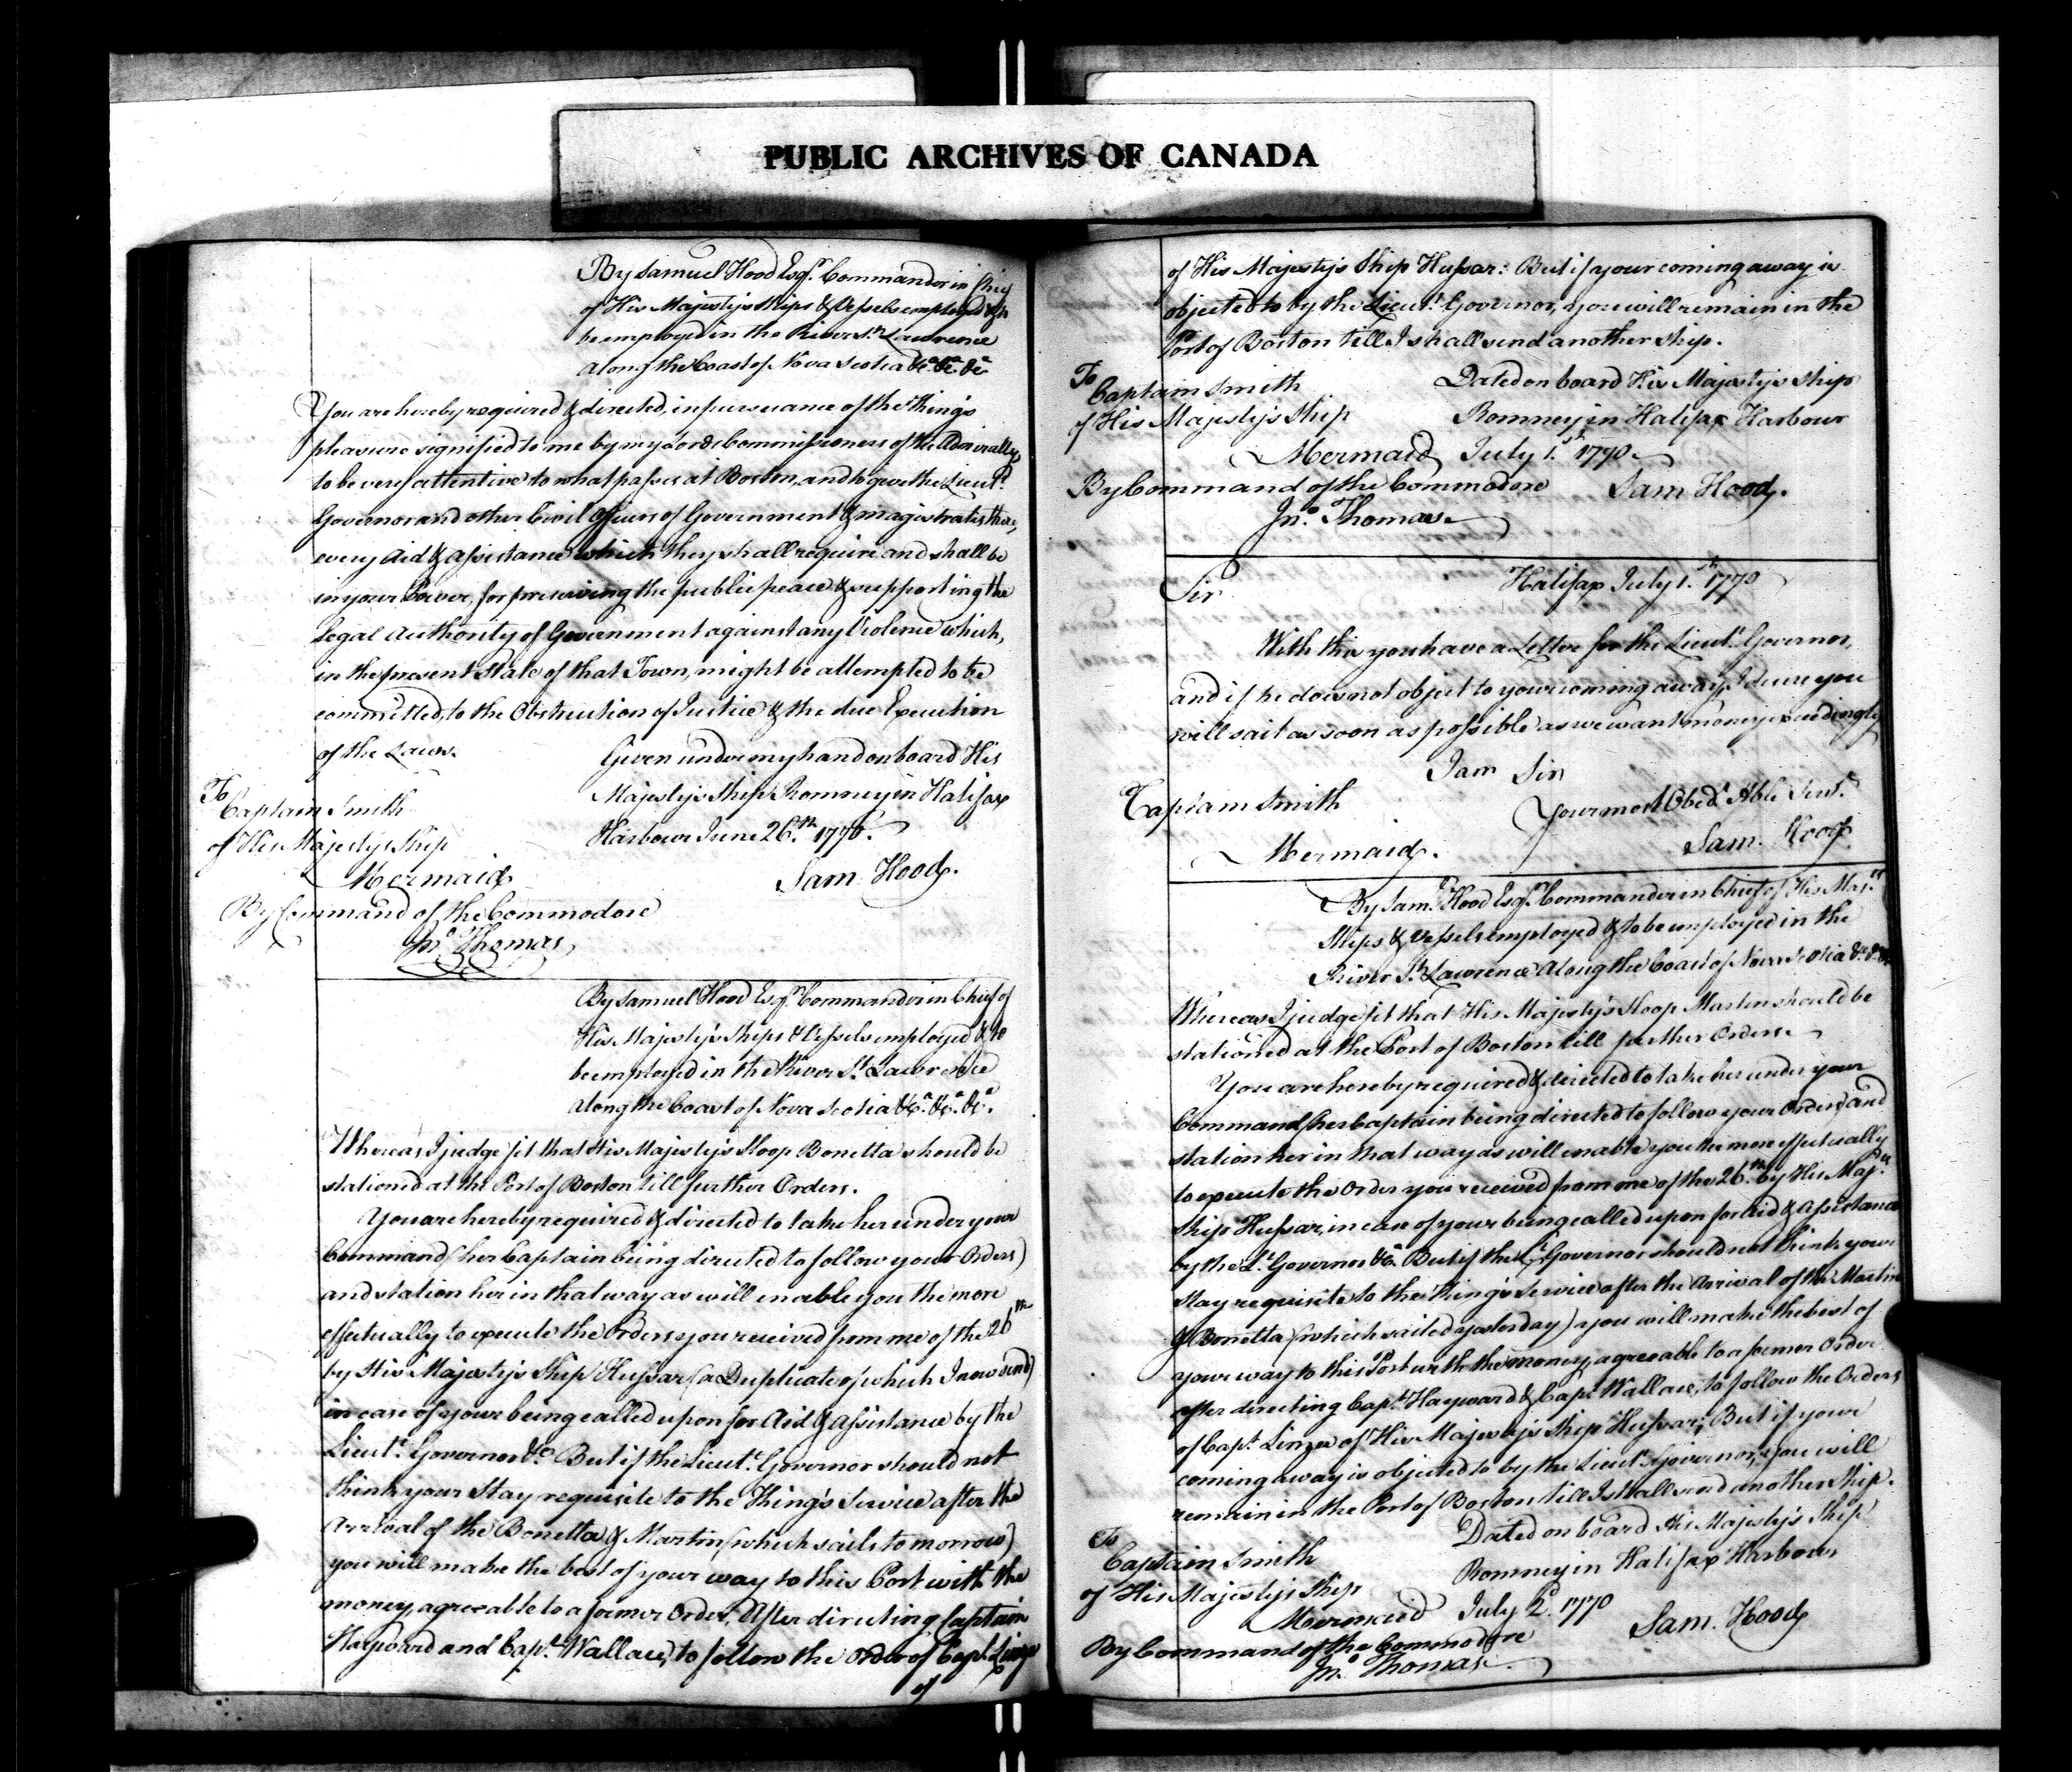 PUBLIC ARCHIVES OF CANADA
By Samuel Hood Esqr. Commander in Chief
of His Majestys Ships & Vessels employed & to
be employed in the River St. Lawrence
along the Coast of Nova Scotia &ca. &ca. &ca
You are hereby required & directed, in pursuance of the King's
pleasure signified to me by my Lords Commissioners of the Admiralty,
to be very attentive to what passes at Boston, and to give the Lieut.
Governor and other Civil Officers of Government & magistrates there,
every Aid & Assistance which they shall require and shall be
in your Power, for preserving the public peace & supporting the
Legal Authority of Government against any Violence which,
in the present State of that Town, might be attempted to be
committed, to the Obstruction of Justice & the due Execution
of the Laws.
Given under my hand on board His
Majestys Ship Romney in Halifax
Harbour June 26.th 1770.
Sam Hood.
To
Captain Smith
of His Majestys Ship
Mermaid
By Command of the Commodore
Jno. Thomas
By Samuel Hood Esqr. Commander in Chief of
His Majesty's Ships & Vessels employed & to
be employed in the River St. Lawrence
along the Coast of Nova Scotia &ca. &ca. &ca.
Whereas I judge fit that His Majesty's Sloop Bonetta should be
stationed at the Port of Boston till further Orders.
You are hereby required & directed to take her under your
Command (her Captain being directed to follow your Orders)
and station her in that way as will enable you the more
effectually to execute the Orders you received from me of the 26th
by His Majesty's Ship Hussar (a Duplicate of which I now send)
in case of your being called upon for Aid & Assistance by the
Lieut. Governor &ca. But if the Lieut. Governor should not
think your Stay requisite to the King's Service after the
Arrival of the Bonetta & Martin (which sails to morrow)
you will make the best of your way to this Port with the
money, agreeable to a former Order, After directing Captain
Hayward and Capt. Wallace, to follow the Orders of Capt. Linzee
of
of His Majesty's Ship Hussar: But if your coming away is
objected to by the Lieut. Governor, you will remain in the
Port of Boston till I shall send another Ship.
To
Captain Smith
of His Majesty's Ship
Mermaid
Dated on board His Majesty's Ship
Romney in Halifax Harbour
July 1.st 1770.
By Command of the Commodore
Sam Hood.
Jno. Thomas
Halifax July 1.st 1770
Sir
With this you have a Letter for the Lieut. Governor,
and if he does not object to your coming away, I desire you
will sail as soon as possible as we want money exceedingly
I am Sir
Your most Obedt. Hble Servt.
Sam. Hood
Captain Smith
Mermaid.
By Saml. Hood Esqr. Commander in Chief of His Majts.
Ships & Vessels employed & to be employed in the
River St. Lawrence Along the Coast of Nova Scotia &c &c &c
Whereas I judge fit that His Majesty's Sloop Martin should be
stationed at the Port of Boston till further Orders.
You are hereby required & directed to take her under your
Command (her Captain being directed to follow your Orders) and
station her in that way as will enable you the more effectually
to execute the Order you received from me of the 26th. by His Majts.
Ship Hussar, in case of your being called upon for Aid & Assistance
by the Lt. Governor &ca. But if the Lt. Governor should not think your
Stay requisite to the King's Service after the Arrival of the Martin
& Bonetta (which sailed yesterday) you will make the best of
your way to this Port with the money, agreeable to a former Order
after directing Capt. Hayward & Capt. Wallace, to follow the Orders
of Capt. Linzee of His Majesty's Ship Hussar; But if your
coming away is objected to by the Lieut. Governor, you will
remain in the Port of Boston till I shall send another Ship.
To
Captain Smith
of His Majesty's Ship
Mermaid
Dated on board His Majesty's Ship
Romney in Halifax Harbour
July 2d. 1770
Sam. Hood
By Command of the Commodore
Jno. Thomas